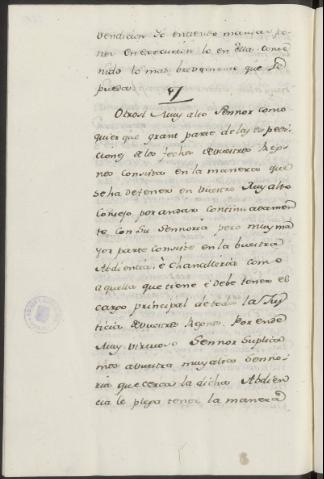 vendicion Yo entiendo mandar po
ner en execucion lo en ella conte
nido lo mas brevemente que Yo
pueda.
Otrosi Muy alto Sennor como
quier que grant parte de las espedi
ciones e los fechos de vuestros Reg
nos consista en la manera que
se ha de tener en vuestro Muy alto
Consejo por andar continuadamen
te con Su Sennoria pero muy ma
yor parte consiste en la vuestra
Abdiencia è Chancilleria como
aquella que tiene è debe tener el
cargo principal de toda la Jus
ticia de vuestros Regnos. Por ende
Muy virtuoso Sennor suplica
mos a vuestra muy alta Senno
ria que cerca la dicha Abdien
cia le plega tener la manera